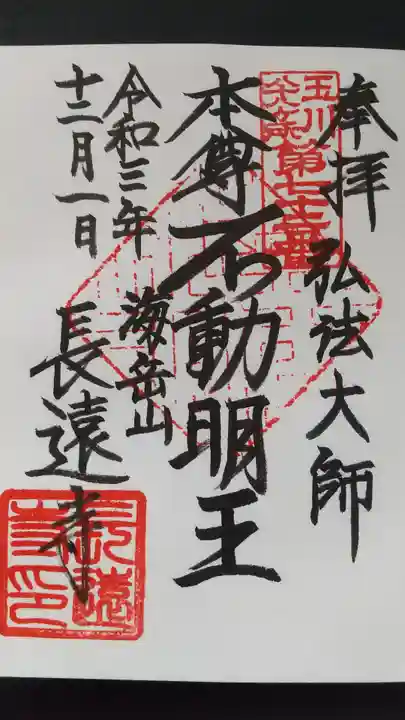 奉拝 弘法大師
玉川
八十八ヶ所
本尊 不動明王
海岳山
長遠寺
令和三年
十二月一日